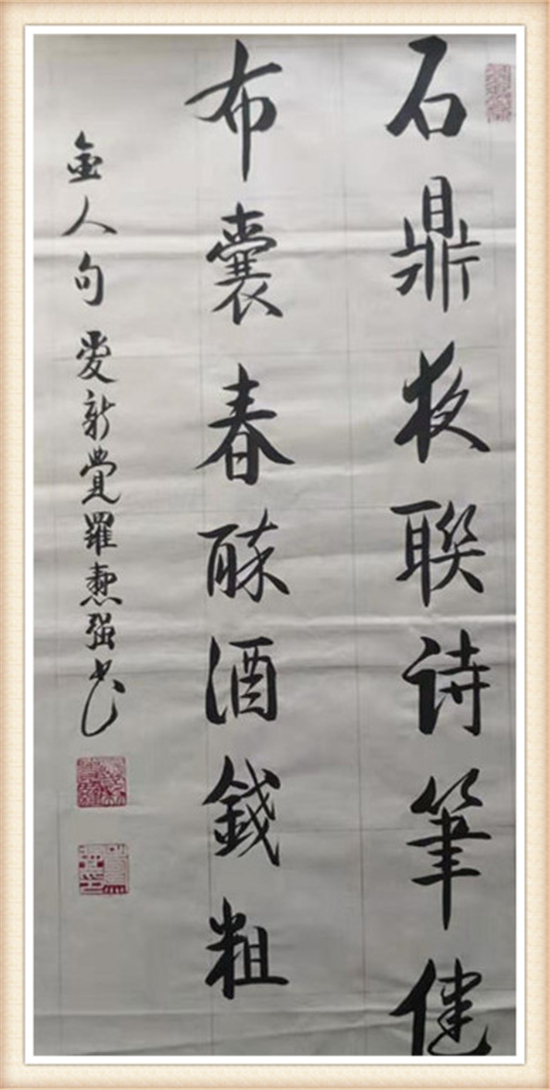 石鼎夜聯詩筆健
布囊春酔酒錢粗
金人句 愛新覺羅 强书